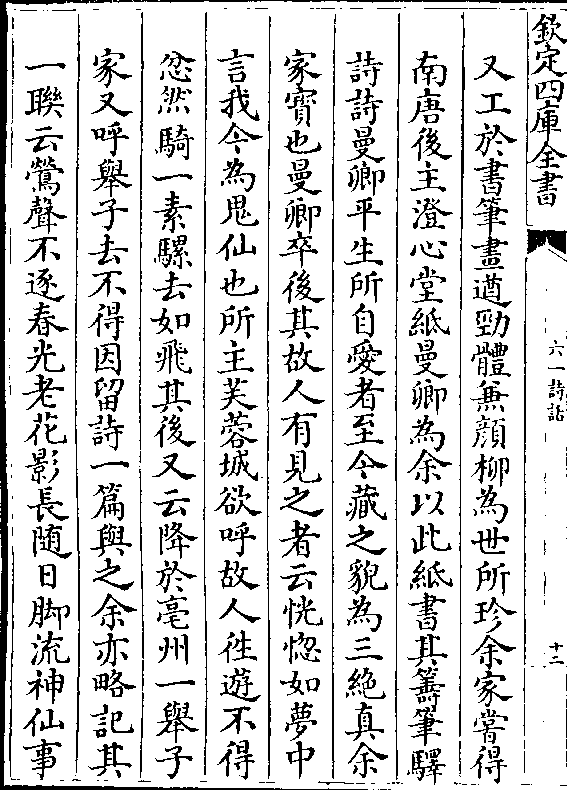 欽定四庫全書
六一詩話
十二
又工於書筆畫遒勁體兼顔柳為世所珍余家嘗得
南唐後主澄心堂紙曼卿為余以此紙書其籌筆驛
詩詩曼卿平生所自愛者至今藏之號為三絶真余
家寳也曼卿卒後其故人有見之者云恍惚如夢中
言我今為鬼仙也所主芙蓉城欲呼故人徃遊不得
忿然騎一素騾去如飛其後又云降於亳州一舉子
家又呼舉子去不得因留詩一篇與之余亦略記其
一聯云鶯聲不逐春光老花影長随日脚流神仙事